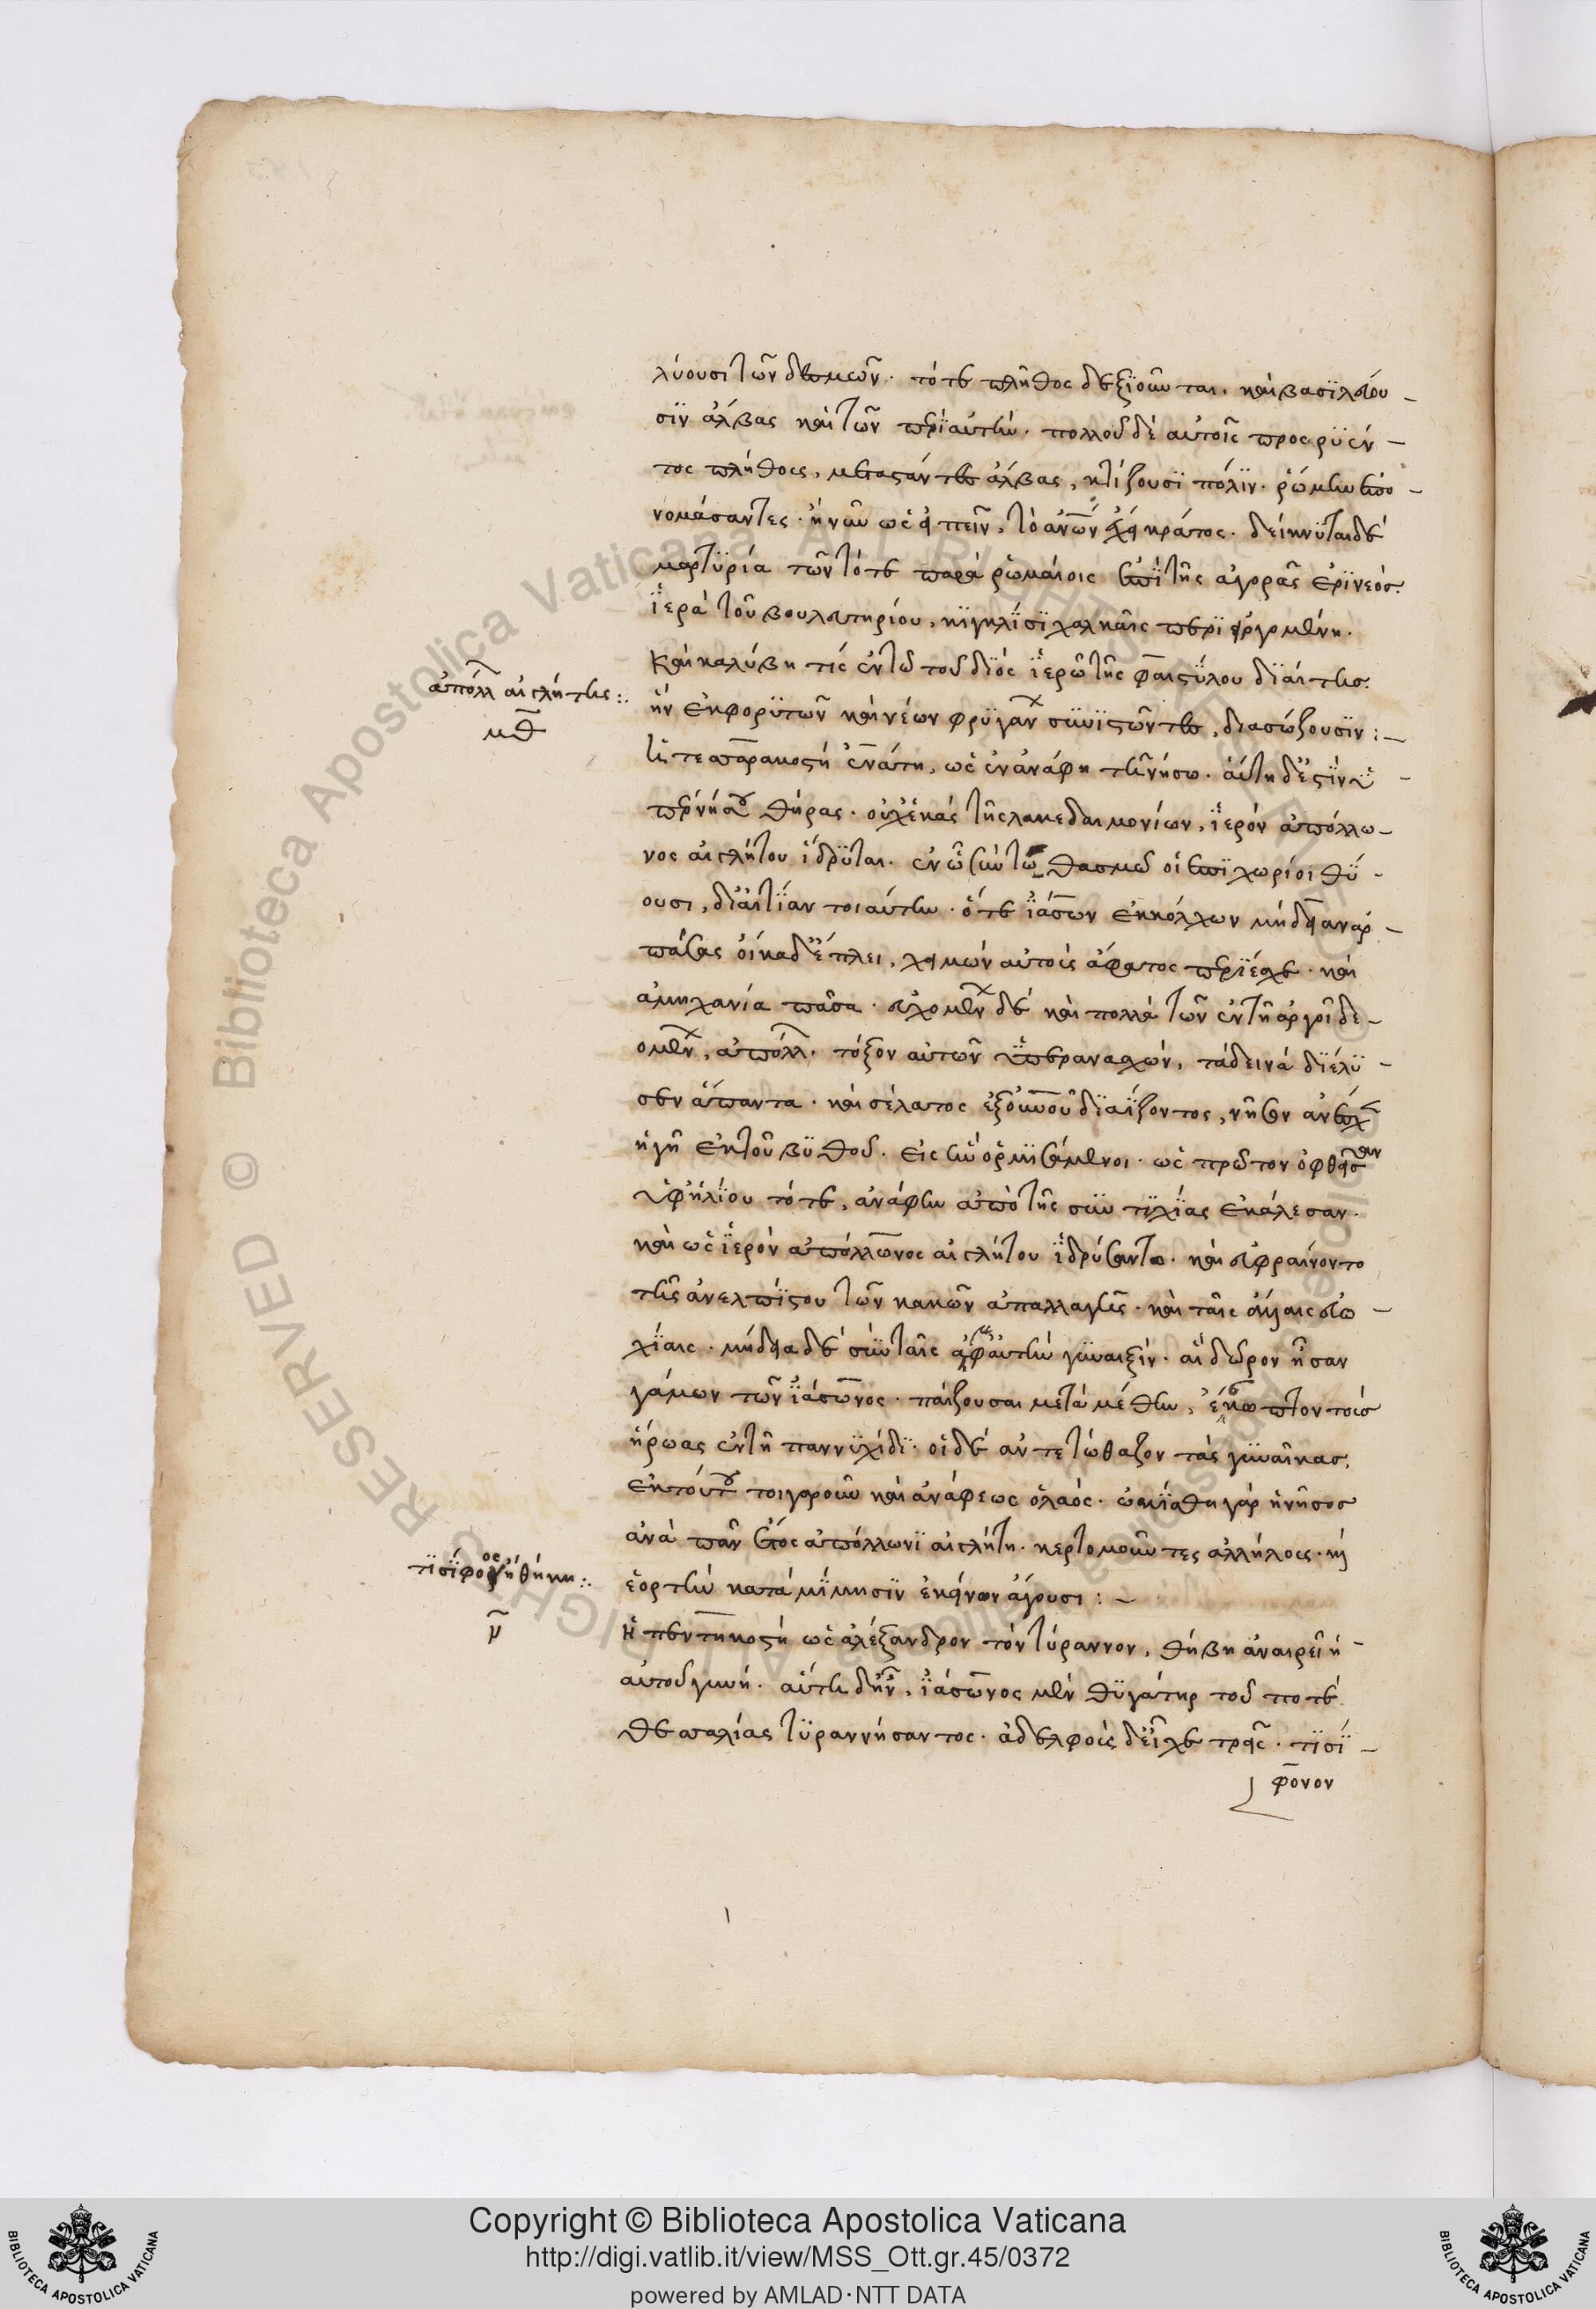 λύουσι τῶν δεσμῶν. τότε πλῆθος δεξιοῦνται. καὶ βασιλεύου-
σϊν ἄλβας καὶ τῶν περὶ αὐτήν. πολλοῦ δὲ αὐτοῖς προσρυέν-
τος πλήθους, μεταστάντες ἄλβας, κτίζουσϊ πόλϊν. ῥώμην ἐπο-
νομάσαντες. ἡ νῦν ὡς εἰπεῖν, τὸ ἀνῶν ἔχει κράτος. δείκνϋται δὲ
μαρτϋρία τῶν τότε παρὰ ῥωμαίοις ἐπὶ τῆς ἀγορᾶς ἐρϊνεός.
ἱερὰ τοῦ βουλευτηρίου, κϊγκλίσϊ χαλκαῖς περϊειργομένη.
Καὶ καλύβη τίς ἐν τῶ τοῦ διὸς ἱερῶ τῆς φαιστύλου διαίτης.
ἣν ἐκ φορϋτῶν καὶ νέων φρϋγάν συνϊστῶντες, διασώζουσϊν :—
ἀπόλλ αἰγλήτης :.
μθ
ἡ τεσαρακοστὴ ἐνάτη, ὡς ἐν ἀνάφη τῆ νήσω. αὕτη δ' ἔστϊν ὑ-
πὲρ νήσου θήρας. οὐχ ἑκὰς τῆς λακεδαιμονίων, ἱερὸν ἀπόλλω-
νος αἰγλήτου ἵδρϋται. ἐν ὧ σὺν τωθασμῶ οἱ ἐπϊχωρίοι θύ-
ουσι, δι' αἰτίαν τοιαύτην. ὅτε ἰάσων ἐκ κόλχων μήδειαν ἁρ-
πάσας οἴκαδ' ἔπλει, χειμὼν αὐτοὺς ἄφατος περϊέσχε. καὶ
ἀμηχανία πᾶσα. εὐχομέν δὲ καὶ πολλὰ τῶν ἐν τῆ ἀργοῖ δε-
ομέν, ἀπόλλ. τόξον αὐτῶν ὑπερανασχὼν, τὰ δεινὰ διέλυ-
σεν ἅπαντα. καὶ σέλατος ἐξ οὐνοῦ διαΐζοντος, νῆσον ἀνέσχ
ἡ γῆ ἐκ τοῦ βϋθοῦ. εἰς ἣν ὁρμϊσάμενοι. ὡς πρῶτον ὀφθεῖσαν
ὑφ' ἡλίου τότε, ἀνάφην ἀπὸ τῆς συντϋχίας ἐκάλεσαν.
καὶ ὡς ἱερὸν ἀπόλλωνος αἰγλήτου ἱδρύσαντο. καὶ εὐφραίνοντο
τῆς ἀνελπίστου τῶν κακῶν ἀπαλλαγῆς. καὶ ταῖς οὔσαις εὐω-
χίαις. μήδεια δὲ σὺν ταῖς ἀμφ' αὐτὴν γυναιξίν. αἳ δῶρον ἦσαν
γάμων τῶν ἰάσωνος. παίζουσαι μετὰ μέθην, ἔσκωπτον τοὺς
ἥρωας ἐν τῆ παννυχίδϊ. οἱ δὲ ἀντετώθαζον τὰς γυναῖκας.
ἐκ τούτου τοιγαροῦν καὶ ἀνάφεως ὁ λαός. ὠκίσθη γὰρ ἡ νῆσος
ἀνὰ πᾶν ἔτος ἀπόλλωνϊ αἰγλήτη. κερτομοῦντες ἀλλήλους. καὶ
ἑορτὴν κατὰ μίμησϊν ἐκείνων ἄγουσι :—
τϊσίφονος ἢ θήβη :.
ν
Ἡ πεντηκοστὴ ὡς ἀλέξανδρον τὸν τύραννον, θήβη ἀναιρεῖ ἡ
αὐτοῦ γυνή. αὕτη δ' ἦν, ἰάσωνος μὲν θϋγάτηρ τοῦ ποτὲ
θεσσαλίας τϋραννήσαντος. ἀδελφοὺς δ' εἶχε τρεῖς. τϊσί-
φονον
Copyright © Biblioteca Apostolica Vaticana
http://digi.vatlib.it/view/MSS_Ott.gr.45/0372
powered by AMLAD·NTT DATA